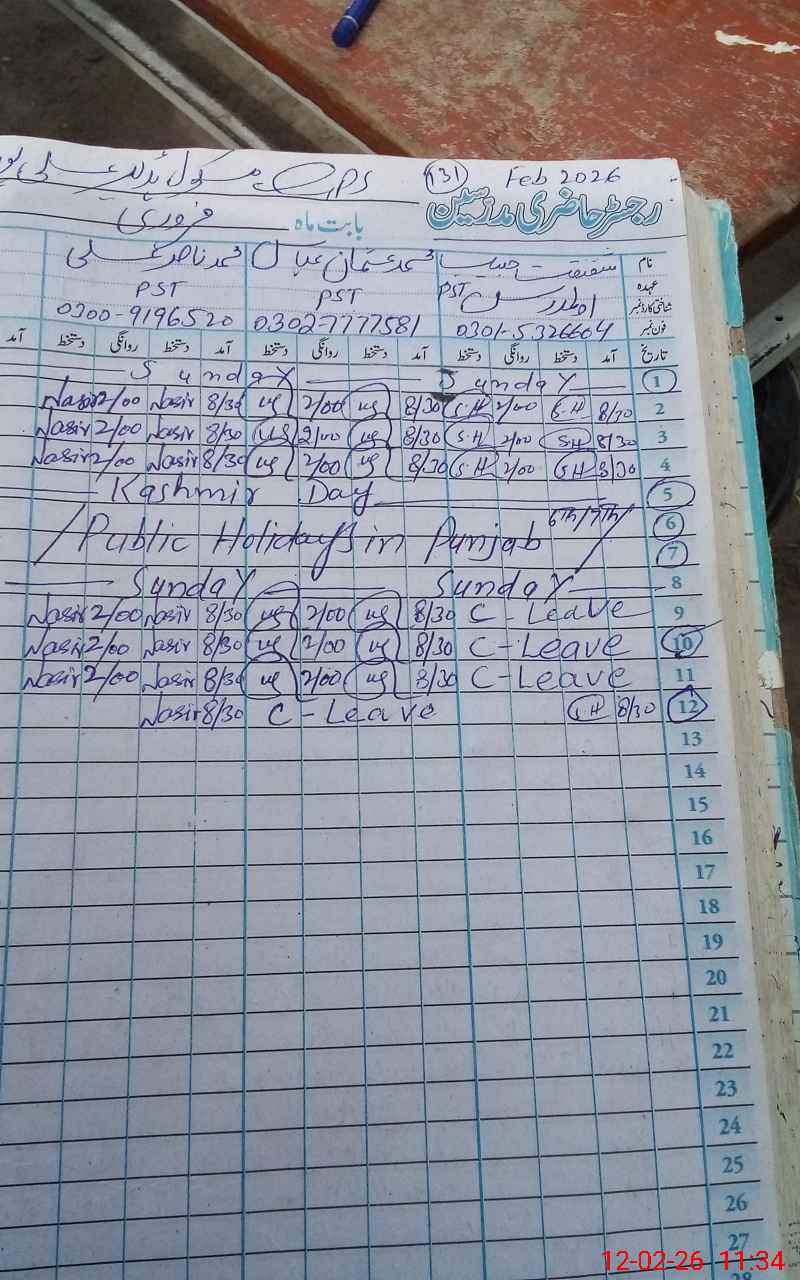 GPS سکول 131 Feb 2026
رجسٹر حاضری مدرسین بابت ماہ فروری
نام شفقت حبیب محمد عثمان عباس محمد ناصر علی
عہدہ PST PST PST
شناختی کارڈ نمبر
فون نمبر 0301-5326604 0302-7777581 0300-9196520
تاریخ آمد دستخط روانگی دستخط آمد دستخط روانگی دستخط آمد دستخط روانگی دستخط آمد
Sunday Sunday 1
Nasir 2/00 Nasir 8/30 2/00 8/30 S.H 2/00 S.H 8/30 2
Nasir 2/00 Nasir 8/30 2/00 8/30 S.H 2/00 S.H 8/30 3
Nasir 2/00 Nasir 8/30 2/00 8/30 S.H 2/00 S.H 8/30 4
Kashmir Day 5
Public Holidays in Punjab 6th/7th 6
7
Sunday Sunday 8
Nasir 2/00 Nasir 8/30 2/00 8/30 C-Leave 9
Nasir 2/00 Nasir 8/30 2/00 8/30 C-Leave 10
Nasir 2/00 Nasir 8/30 2/00 8/30 C-Leave 11
Nasir 8/30 C-Leave S.H 8/30 12
13
14
15
16
17
18
19
20
21
22
23
24
25
26
27
28
12-02-26 11:34